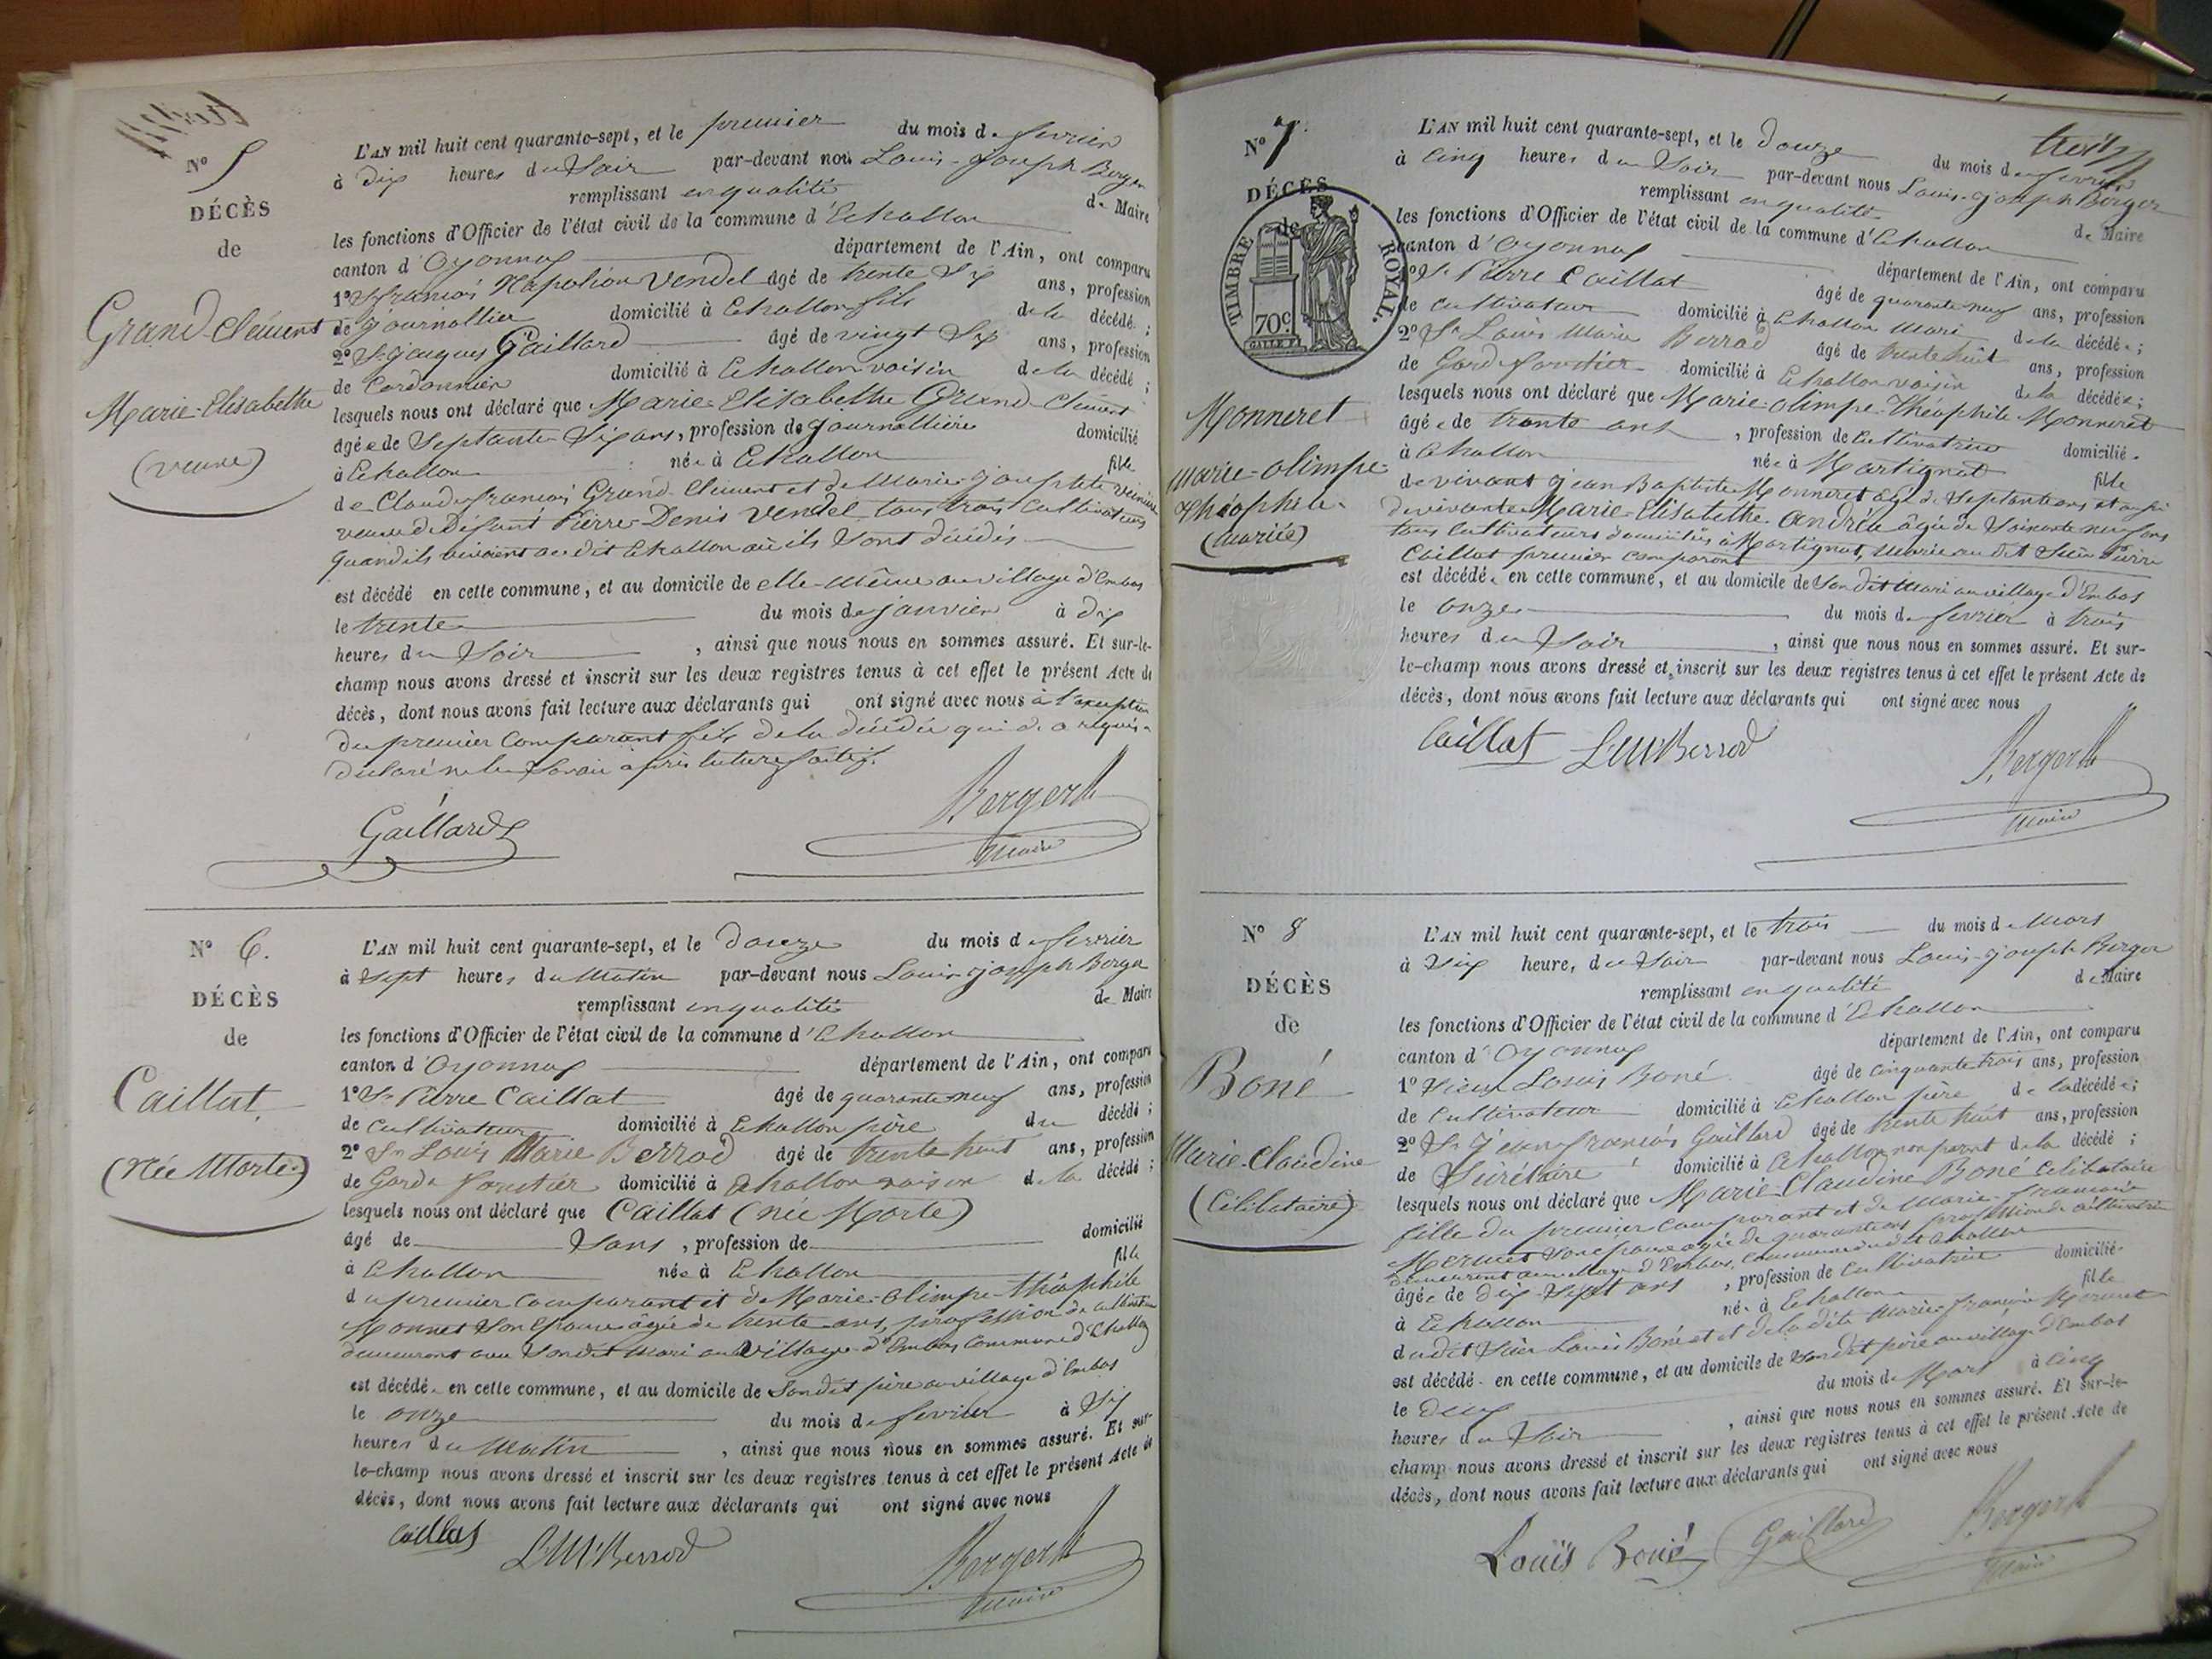 N° 5
DÉCÈS
de
Grand-Clément
Marie-Elisabethe
(veuve)
L'AN mil huit cent quarante-sept, et le premier du mois de fevrier
à dix heures du Soir par-devant nous Louis-Joseph Berger
remplissant en qualité de Maire
les fonctions d'Officier de l'état civil de la commune d'Echallon
canton d'Oyonnax département de l'Ain, ont comparu
1° Sr françois Napoléon Vendel âgé de trente Six ans, profession
de journallier domicilié à Echallon fils de la décédée ;
2° Sr Jacques Gaillard âgé de vingt Six ans, profession
de Cordonnier domicilié à Echallon voisin de la décédé ;
lesquels nous ont déclaré que Marie-Elisabethe Grand-Clément
âgée de Septante Six ans, profession de journallière domicilié
à Echallon née à Echallon fille
de Claude-françois Grand-Clément et de Marie-Josephte
veuve de défunt Pierre-Denis Vendel tous trois Cultivateurs
quand ils vivoient au dit Echallon où ils Sont décédés
est décédé en cette commune, et au domicile de elle-même au village d'Embas
le trente du mois de janvier à dix
heures du Soir , ainsi que nous nous en sommes assuré. Et sur-le-
champ nous avons dressé et inscrit sur les deux registres tenus à cet effet le présent Acte de
décès, dont nous avons fait lecture aux déclarants qui ont signé avec nous à l'exception
du premier Comparant fils de la décédée qui de ce requis a
déclaré ne le Savoir après lecture faite
Gaillard
Berger
Maire
N° 6.
DÉCÈS
de
Caillat
(Née Morte)
L'AN mil huit cent quarante-sept, et le douze du mois de fevrier
à Sept heures du Matin par-devant nous Louis-Joseph Berger
remplissant en qualité de Maire
les fonctions d'Officier de l'état civil de la commune d'Echallon
canton d'Oyonnax département de l'Ain, ont comparu
1° Sr Pierre Caillat âgé de quarante neuf ans, profession
de Cultivateur domicilié à Echallon père du décédé ;
2° Sr Louis Marie Berrod âgé de trente huit ans, profession
de Garde forestier domicilié à Echallon voisin de la décédé ;
lesquels nous ont déclaré que Caillat (née Morte)
âgé de Sans , profession de domicilié
à Echallon née à Echallon fille
du premier Comparant et de Marie-Olimpe-théophile
Monneret Son épouse âgée de trente ans, profession de cultivatrice
demeurant avec Son dit Mari au Village d'Embas Commune d'Echallon
est décédée en cette commune, et au domicile de Son dit père au village d'Embas
le onze du mois de fevrier à Six
heures du Matin , ainsi que nous nous en sommes assuré. Et sur-
le-champ nous avons dressé et inscrit sur les deux registres tenus à cet effet le présent Acte de
décès, dont nous avons fait lecture aux déclarants qui ont signé avec nous
Caillat LM Berrod
Berger
Maire
N° 7.
DÉCÈS
de
TIMBRE ROYAL.
70c
Monneret
Marie-Olimpe
théophile
(mariée)
L'AN mil huit cent quarante-sept, et le douze du mois de fevrier
à Cinq heures du Soir par-devant nous Louis-Joseph Berger
remplissant en qualité de Maire
les fonctions d'Officier de l'état civil de la commune d'Echallon
canton d'Oyonnax département de l'Ain, ont comparu
1° Sr Pierre Caillat âgé de quarante neuf ans, profession
de Cultivateur domicilié à Echallon Mari de la décédée ;
2° Sr Louis Marie Berrod âgé de trente huit ans, profession
de Garde forestier domicilié à Echallon voisin de la décédée ;
lesquels nous ont déclaré que Marie-Olimpe-théophile Monneret
âgée de trente ans , profession de Cultivatrice domicilié
à Echallon née à Martignat fille
de vivant Jean Baptiste Monneret âgé de Septante ans et aussi
de vivante Marie-Elisabethe Andréa âgée de Soixante neuf ans
tous Cultivateurs domiciliés à Martignat, Mariée au dit Sieur Pierre
Caillat premier comparant
est décédée en cette commune, et au domicile de Son dit Mari au village d'Embas
le onze du mois de fevrier à trois
heures du Soir , ainsi que nous nous en sommes assuré. Et sur-
le-champ nous avons dressé et inscrit sur les deux registres tenus à cet effet le présent Acte de
décès, dont nous avons fait lecture aux déclarants qui ont signé avec nous
Caillat LM Berrod
Berger
Maire
N° 8
DÉCÈS
de
Boné
Marie-Claudine
(Célibataire)
L'AN mil huit cent quarante-sept, et le trois du mois de Mars
à Six heures du Soir par-devant nous Louis-Joseph Berger
remplissant en qualité de Maire
les fonctions d'Officier de l'état civil de la commune d'Echallon
canton d'Oyonnax département de l'Ain, ont comparu
1° Sieur Louis Boné âgé de Cinquante trois ans, profession
de Cultivateur domicilié à Echallon père de la décédée ;
2° Sr Jean françois Gaillard âgé de trente huit ans, profession
de Sécrétaire domicilié à Echallon non parent de la décédé ;
lesquels nous ont déclaré que Marie-Claudine Boné Célibataire
fille du premier Comparant et de Marie-françoise
Mermet Son épouse âgée de quarante ans profession de cultivatrice
demeurant au village d'Embas, Commune du dit Echallon
âgée de dix-Sept ans , profession de Cultivatrice domicilié
à Echallon née à Echallon fille
du dit Sieur Louis Boné et de la dite Marie-françoise Mermet
est décédé en cette commune, et au domicile de Son dit père au village d'Embas
le deux du mois de Mars à Cinq
heures du Soir , ainsi que nous nous en sommes assuré. Et sur-le-
champ nous avons dressé et inscrit sur les deux registres tenus à cet effet le présent Acte de
décès, dont nous avons fait lecture aux déclarants qui ont signé avec nous
Louis Boné Gaillard
Berger
Maire